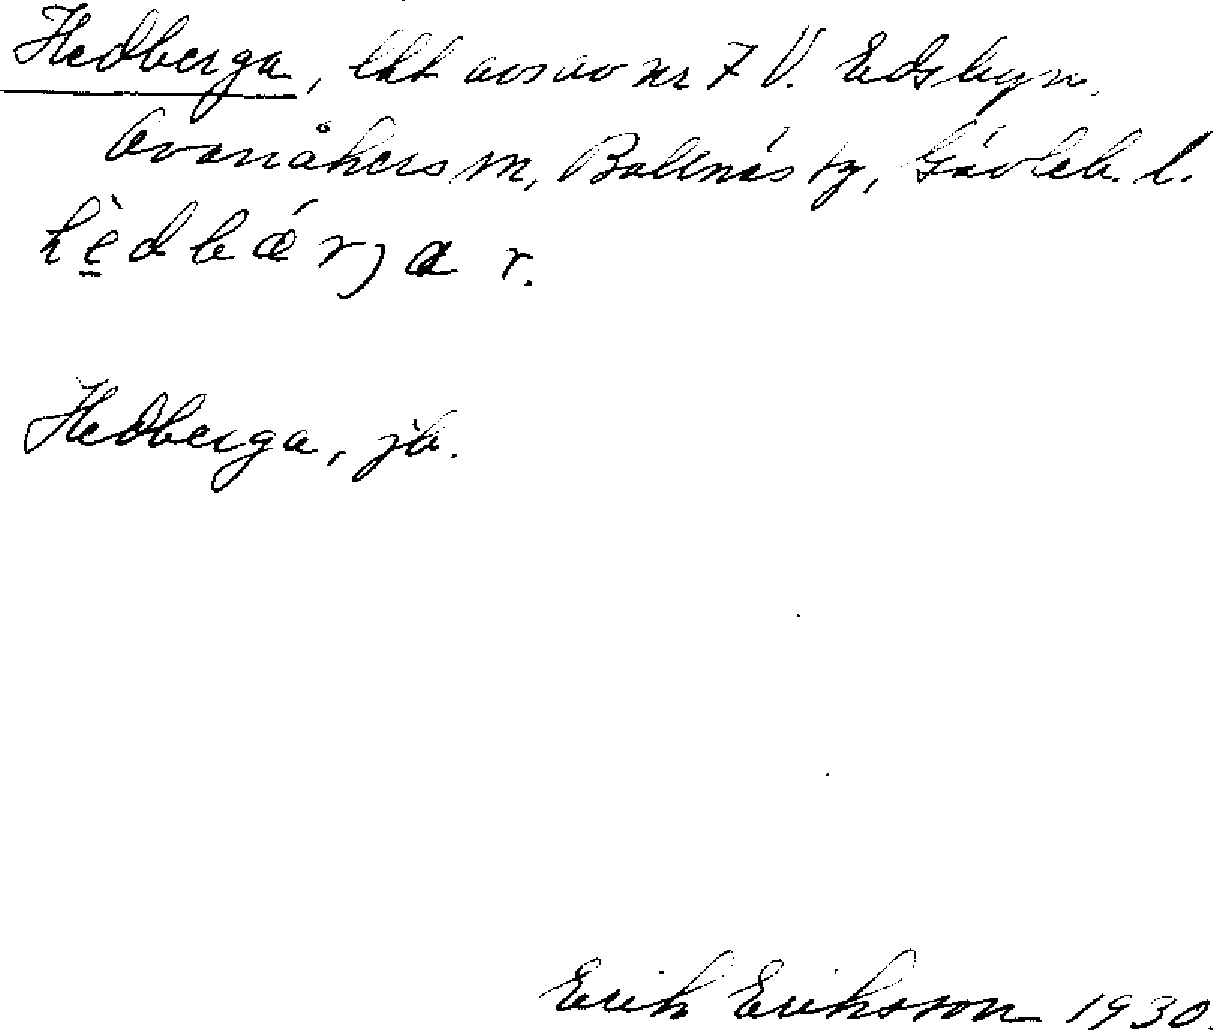 Hedberga, lht avsav nr 7 V. Edsbyn.
Ovanåkers sn, Bollnäs tg, Gävleb. l.
hèdbǽrja r.
Hedberga, jb.
Erik Eriksson 1930.